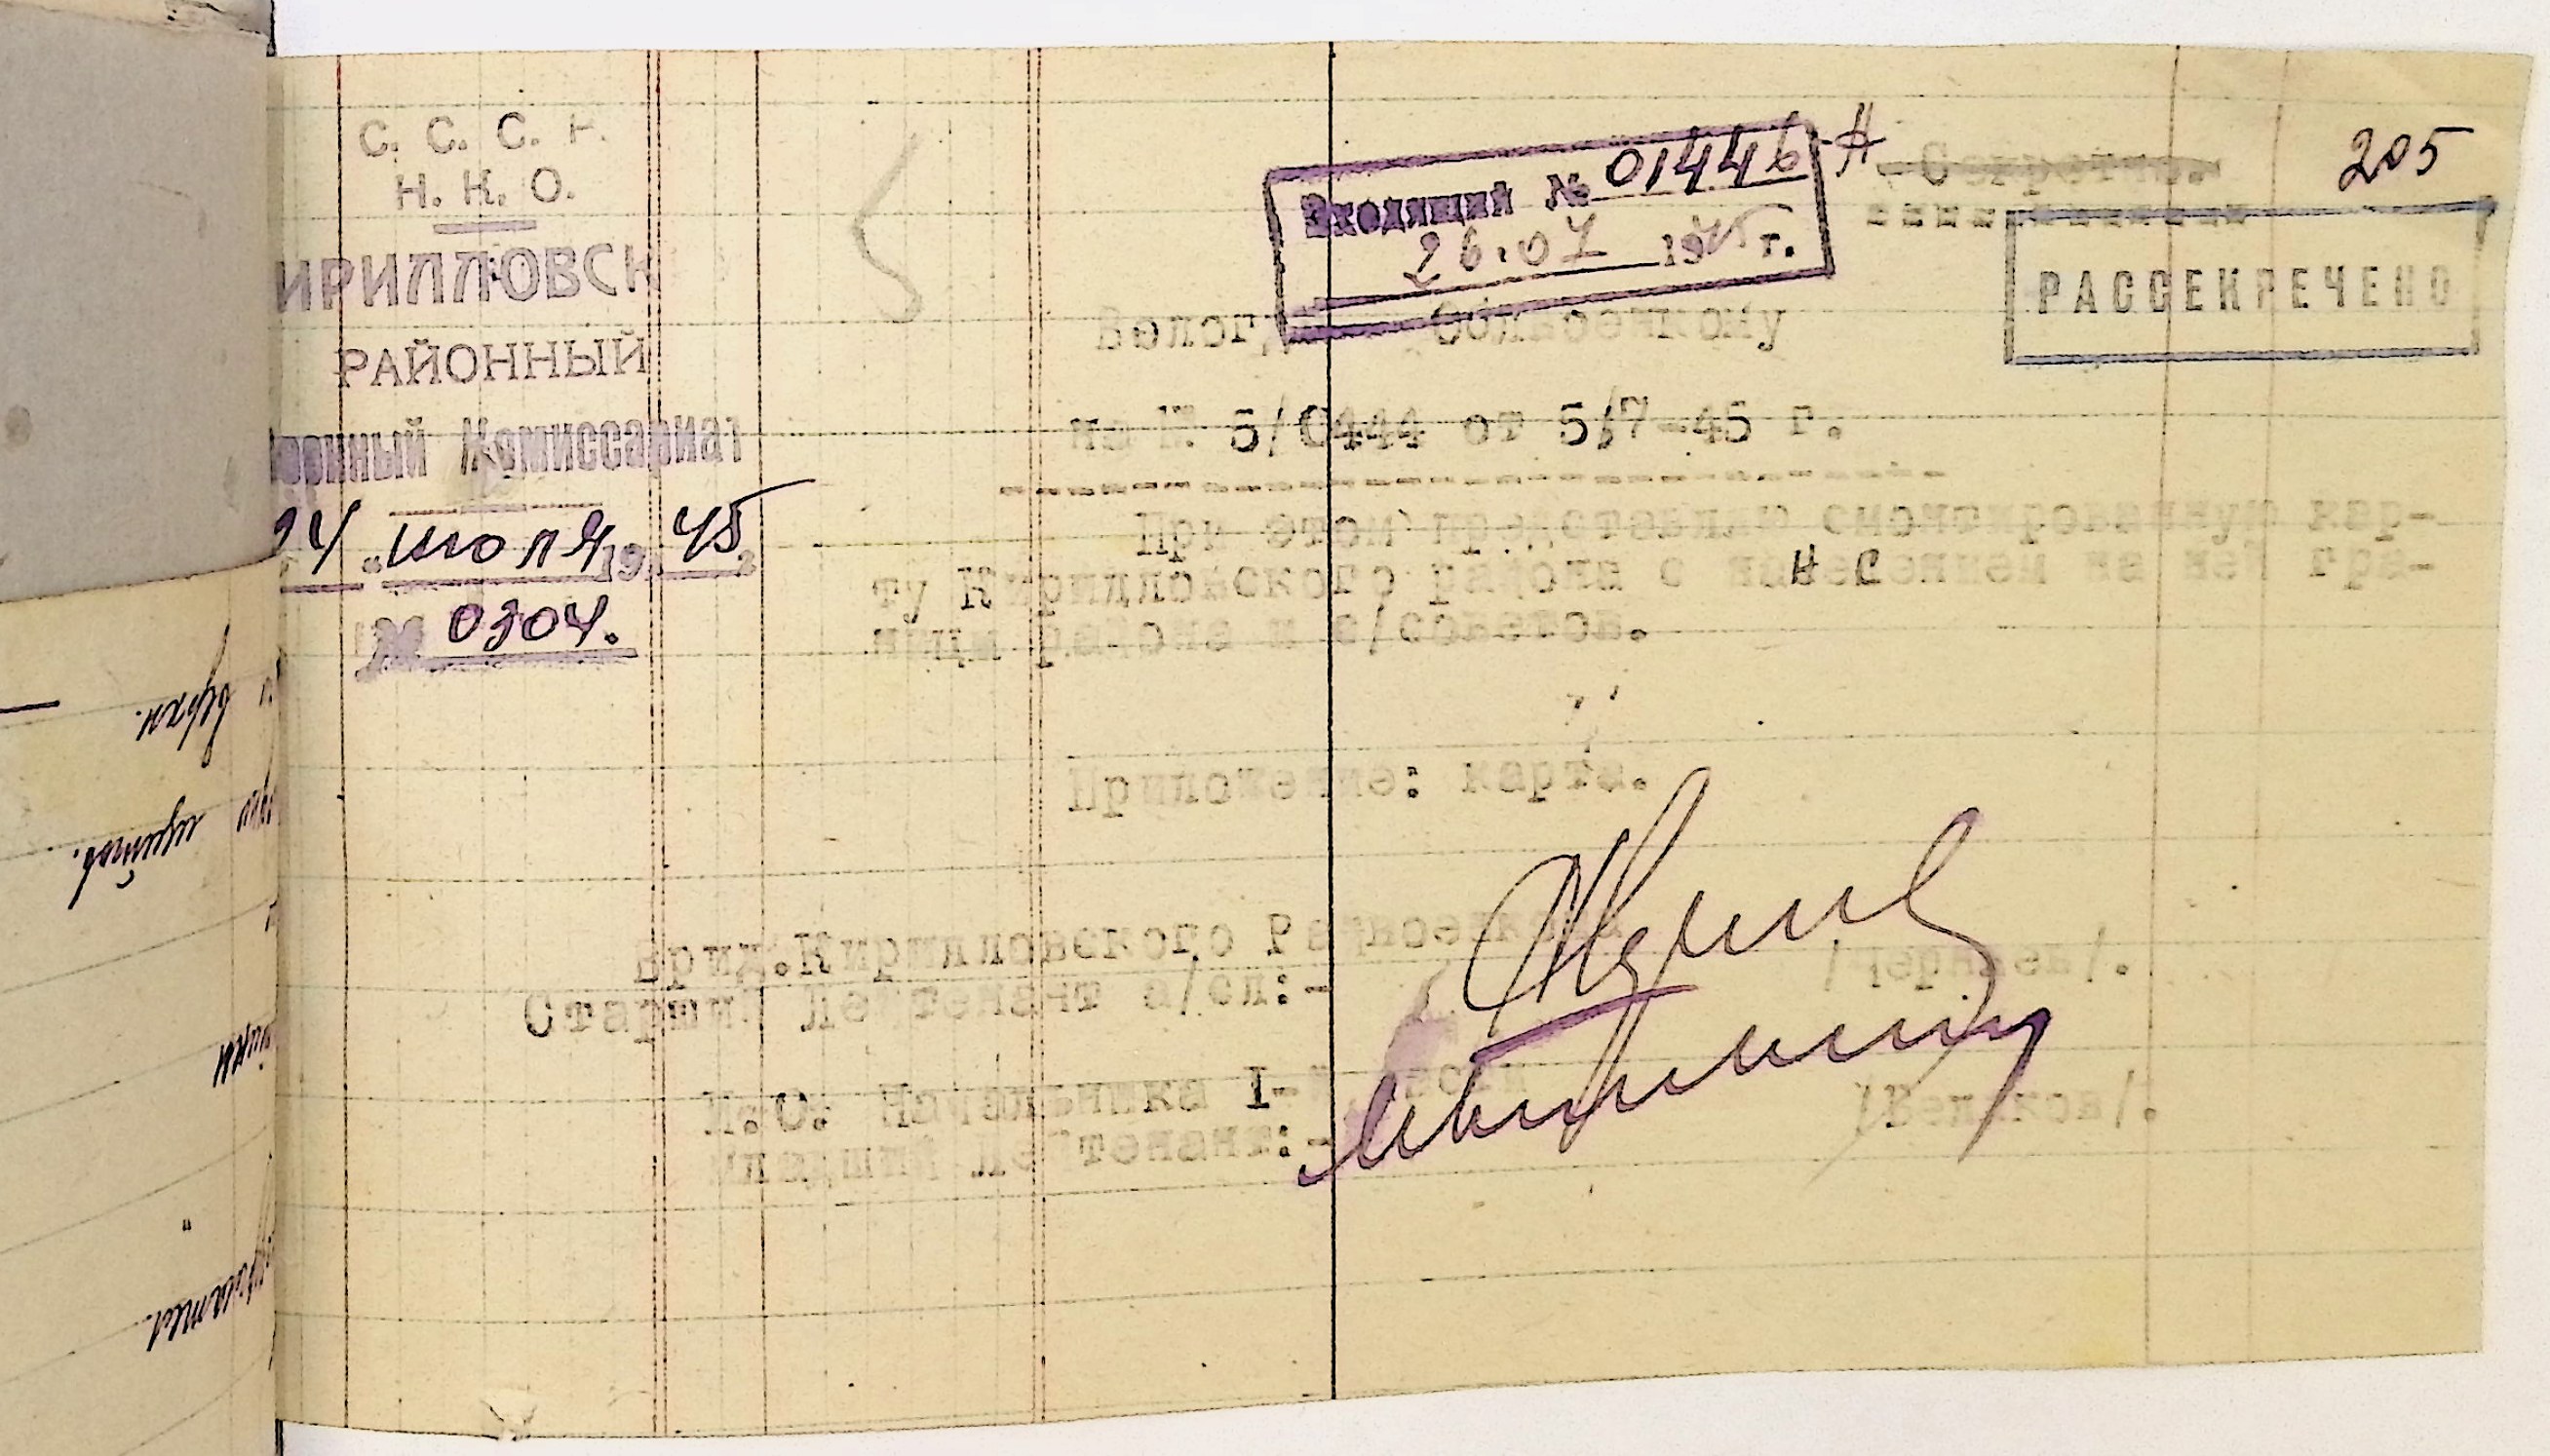 С. С. С. Р.
Н. К. О.
ИРИЛЛОВСК
РАЙОННЫЙ
военный Комиссариат
24 „ июля 1945 г
№ 0304.
Входящий № 01446
26.07 1945 г.
Секретно.
205
РАССЕКРЕЧЕНО
Волог Областному
на № 5/0444 от 5/7-45 г.
При этом представляю смонтированную кар-
ту Кирилловского района с нанесением на ней гра-
ницы района и с/советов.
Приложение: карта.
Врид. Кирилловского Райвоенкома
Старший Лейтенант а/сл:-
/Черняев/.
И.О. Начальника I-й части
Младший Лейтенант:-
верхн.
пунктов.